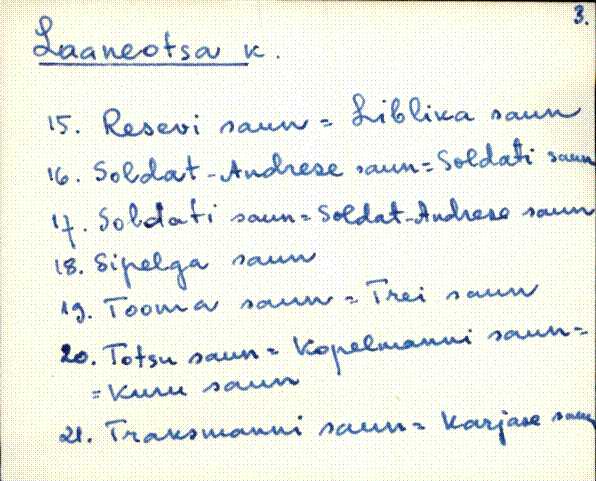 3.
Laaneotsa k.
15. Resevi saun = Liblika saun
16. Soldat-Andrese saun = Soldati saun
17. Soldati saun = Soldat-Andrese saun
18. Sipelga saun
19. Tooma saun = Trei saun
20. Totsu saun = Kopelmanni saun =
= Kuru saun
21. Traksmanni saun = Karjase saun